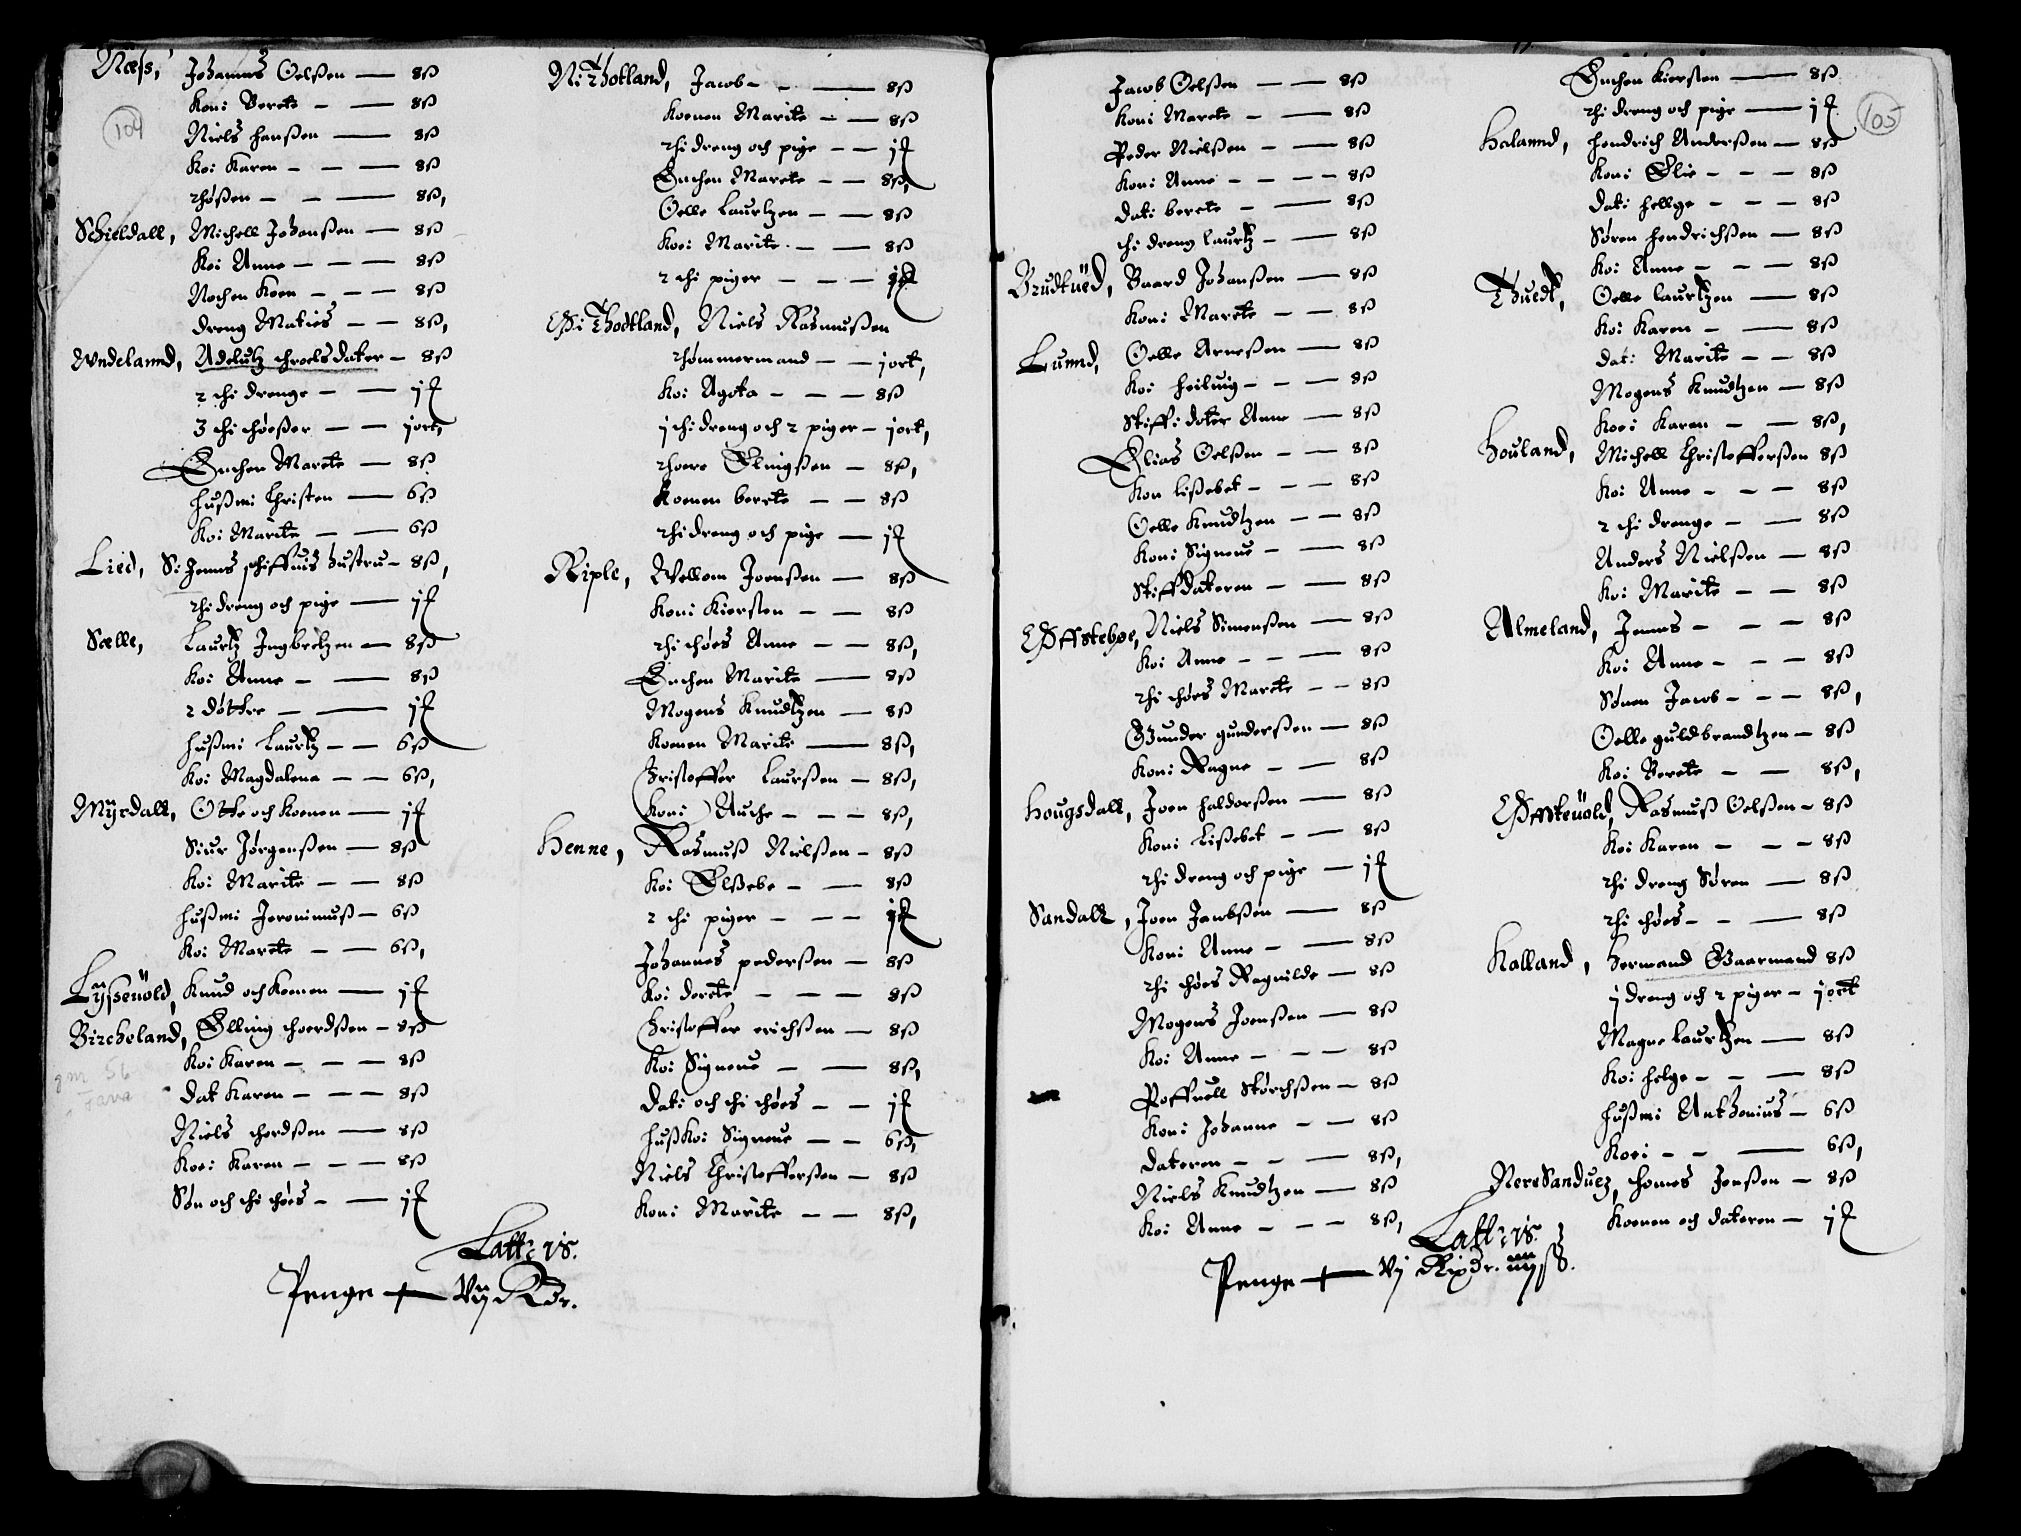 104
Næss, Johanns Oelsßen — 8ß
Koni Berete — 8ß
Niels Hanßen — 8ß
Koi Karen — 8ß
thößen — 8ß,
Schieldall, Michell Johanßen — 8ß
Koi Anne — 8ß
Nochen Koen — 8ß
dreng Maties — 8ß,
Wndelannd, Adelutz chroels dater — 8ß
2 chi drenge — 1f
3 chi chöeßer — 1ort,
Enchen Marete — 8ß
Hußmi Christen — 6ß
Koi Marite — 6ß
Lied, Si: Jenns schiffuis Hustru — 8ß,
chi dreng och pige — 1f
Sælle, Laurtz Ingbretzen — 8ß
Koi Anne — 8ß
2 döttre — 1f
Hußmi Laurtz — 6ß
Koi Magdalena — 6ß,
Mÿrdall, Otte och Koenen — 1f
Siur Jörgenßen — 8ß
Koi Marite — 8ß
Hußmi Jeronimuß — 6ß
Koi Marete — 6ß,
Lÿsseuold, Knud och Konen — 1f
Bircheland, Elling choerdßen — 8ß
Koi Karen — 8ß
Dat Karen — 8ß
Niels chordßen — 8ß
Koei Karen — 8ß
Sön och chi chöes — 1f
Ni Thotland, Jacob — 8ß
Koenen Marite — 8ß
chi dreng och pige — 1f
Enchen Marete — 8ß,
Oelle Laurtzen — 8ß
Koei Marite — 8ß
2 chi piger — 1f
Öffi Thodtland, Niels Rasmußen
thömmermand — 1ort,
Koi Agota — 8ß
1 chi dreng och 2 piger — 1ort,
thore Elingßen — 8ß,
Koenen berete — 8ß
chi dreng och pige — 1f
Riple, Wellom Joenßen — 8ß
Koni Kiersten — 8ß
chi chöes Anne — 8ß,
Enchen Marite — 8ß
Mogens Knudtzen — 8ß
Koenen Marite — 8ß,
Christoffer Laurßen — 8ß,
Koni Auche — 8ß,
Henne, Rasmuß Nielßen — 8ß
Koi Elßebe — 8ß
2 chi piger — 1f
Johannes pederßen — 8ß
Koi dorete — 8ß
Christoffer erichßen — 8ß
Koi Signeue — 8ß,
Dati och chi chöes — 1f
HußKoi Signeue — 6ß,
Niels Christofferßen — 8ß
Koni Marite — 8ß,
Latteris.
Penge — Vÿ Rdr.
105
Jacob Oelßen — 8ß
Koni Marete — 8ß
Peder Nielßen — 8ß
Koni Anne — 8ß
Dati berete — 8ß
chi dreng Laurtz — 8ß
Brudtüed, Baard Johanßen — 8ß
Koni Marete — 8ß
Lunnd, Oelle Arneßen — 8ß
Koi Heiluig — 8ß
Stiffi doter Anne — 8ß
Elias Oelßen — 8ß
Kon Lißebet — 8ß
Oelle Knudtzen — 8ß
Koni Signeue — 8ß
Stiffdateren — 8ß
Öffstebøe, Niels Simonßen — 8ß
Koi Anne — 8ß
chi chöes Marete — 8ß
Gunder gunderßen — 8ß
Koni Ragne — 8ß
Hougsdall, Joen Haldorßen — 8ß
Koni Lißebet — 8ß
chi dreng och pige — 1f
Sandall, Joen Jacobßen — 8ß
Koni Anne — 8ß
chi chöes Ragnilde — 8ß
Mogens Joenßen — 8ß
Koi Anne — 8ß
Poffuell Störchßen — 8ß
Koni Johanne — 8ß
Dateren — 8ß,
Niels Knudtzen — 8ß
Koi Anne — 8ß,
Enchen Kiersten — 8ß
chi dreng och pige — 1f
Halannd, Hendrich Anderßen — 8ß
Koni Elie — 8ß
Dati Hellge — 8ß
Sören Hendrichßen — 8ß
Koi Anne — 8ß
Thuedt, Oelle Laurtzen — 8ß
Koi Karen — 8ß
Dat: Marite — 8ß
Mogens Knudtzen — 8ß
Koei Karen — 8ß,
Houland, Michell Christofferßen 8ß
Koi Anne — 8ß
2 chi drenge — 8ß
Anders Nielßen — 8ß
Koi Marite — 8ß
Almeland, Jenns — 8ß
Koi Anne — 8ß
Sönen Jacob — 8ß,
Oelle guldbrandtzen — 8ß
Koi Berete — 8ß,
Öffsteuold, Rasmuß Oelßen — 8ß
Koi Karen — 8ß
chi dreng Sören — 8ß
chi chöes — 8ß
Kalland, Hermand Gaarmand 8ß
1 dreng och 2 piger — 1ort
Magne Laurtzen — 8ß
Koi Helge — 8ß
Hußmi Anthonius — 6ß
Koei — 6ß,
NereSanduez, chomes Jenßen — 8ß
Koenen och dateren — 1f
Latteris.
Penge — Vj Rixdr. iiijß.